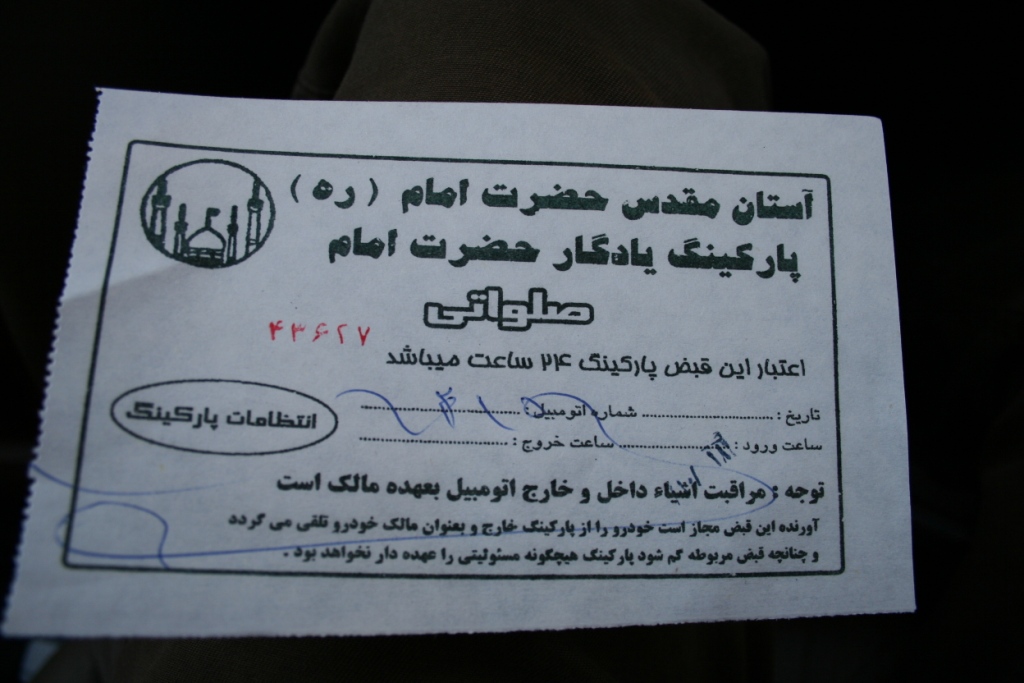 آستان مقدس حضرت امام (ره)
پارکینگ یادگار حضرت امام
صلواتی
۴۳۶۲۷
اعتبار این قبض پارکینگ ۲۴ ساعت میباشد
تاریخ : شماره اتومبیل :
ساعت ورود : ساعت خروج :
انتظامات پارکینگ
توجه : مراقبت اشیاء داخل و خارج اتومبیل بعهده مالک است
آورنده این قبض مجاز است خودرو را از پارکینگ خارج و بعنوان مالک خودرو تلقی می گردد
و چنانچه قبض مربوطه گم شود پارکینگ هیچگونه مسئولیتی را عهده دار نخواهد بود .